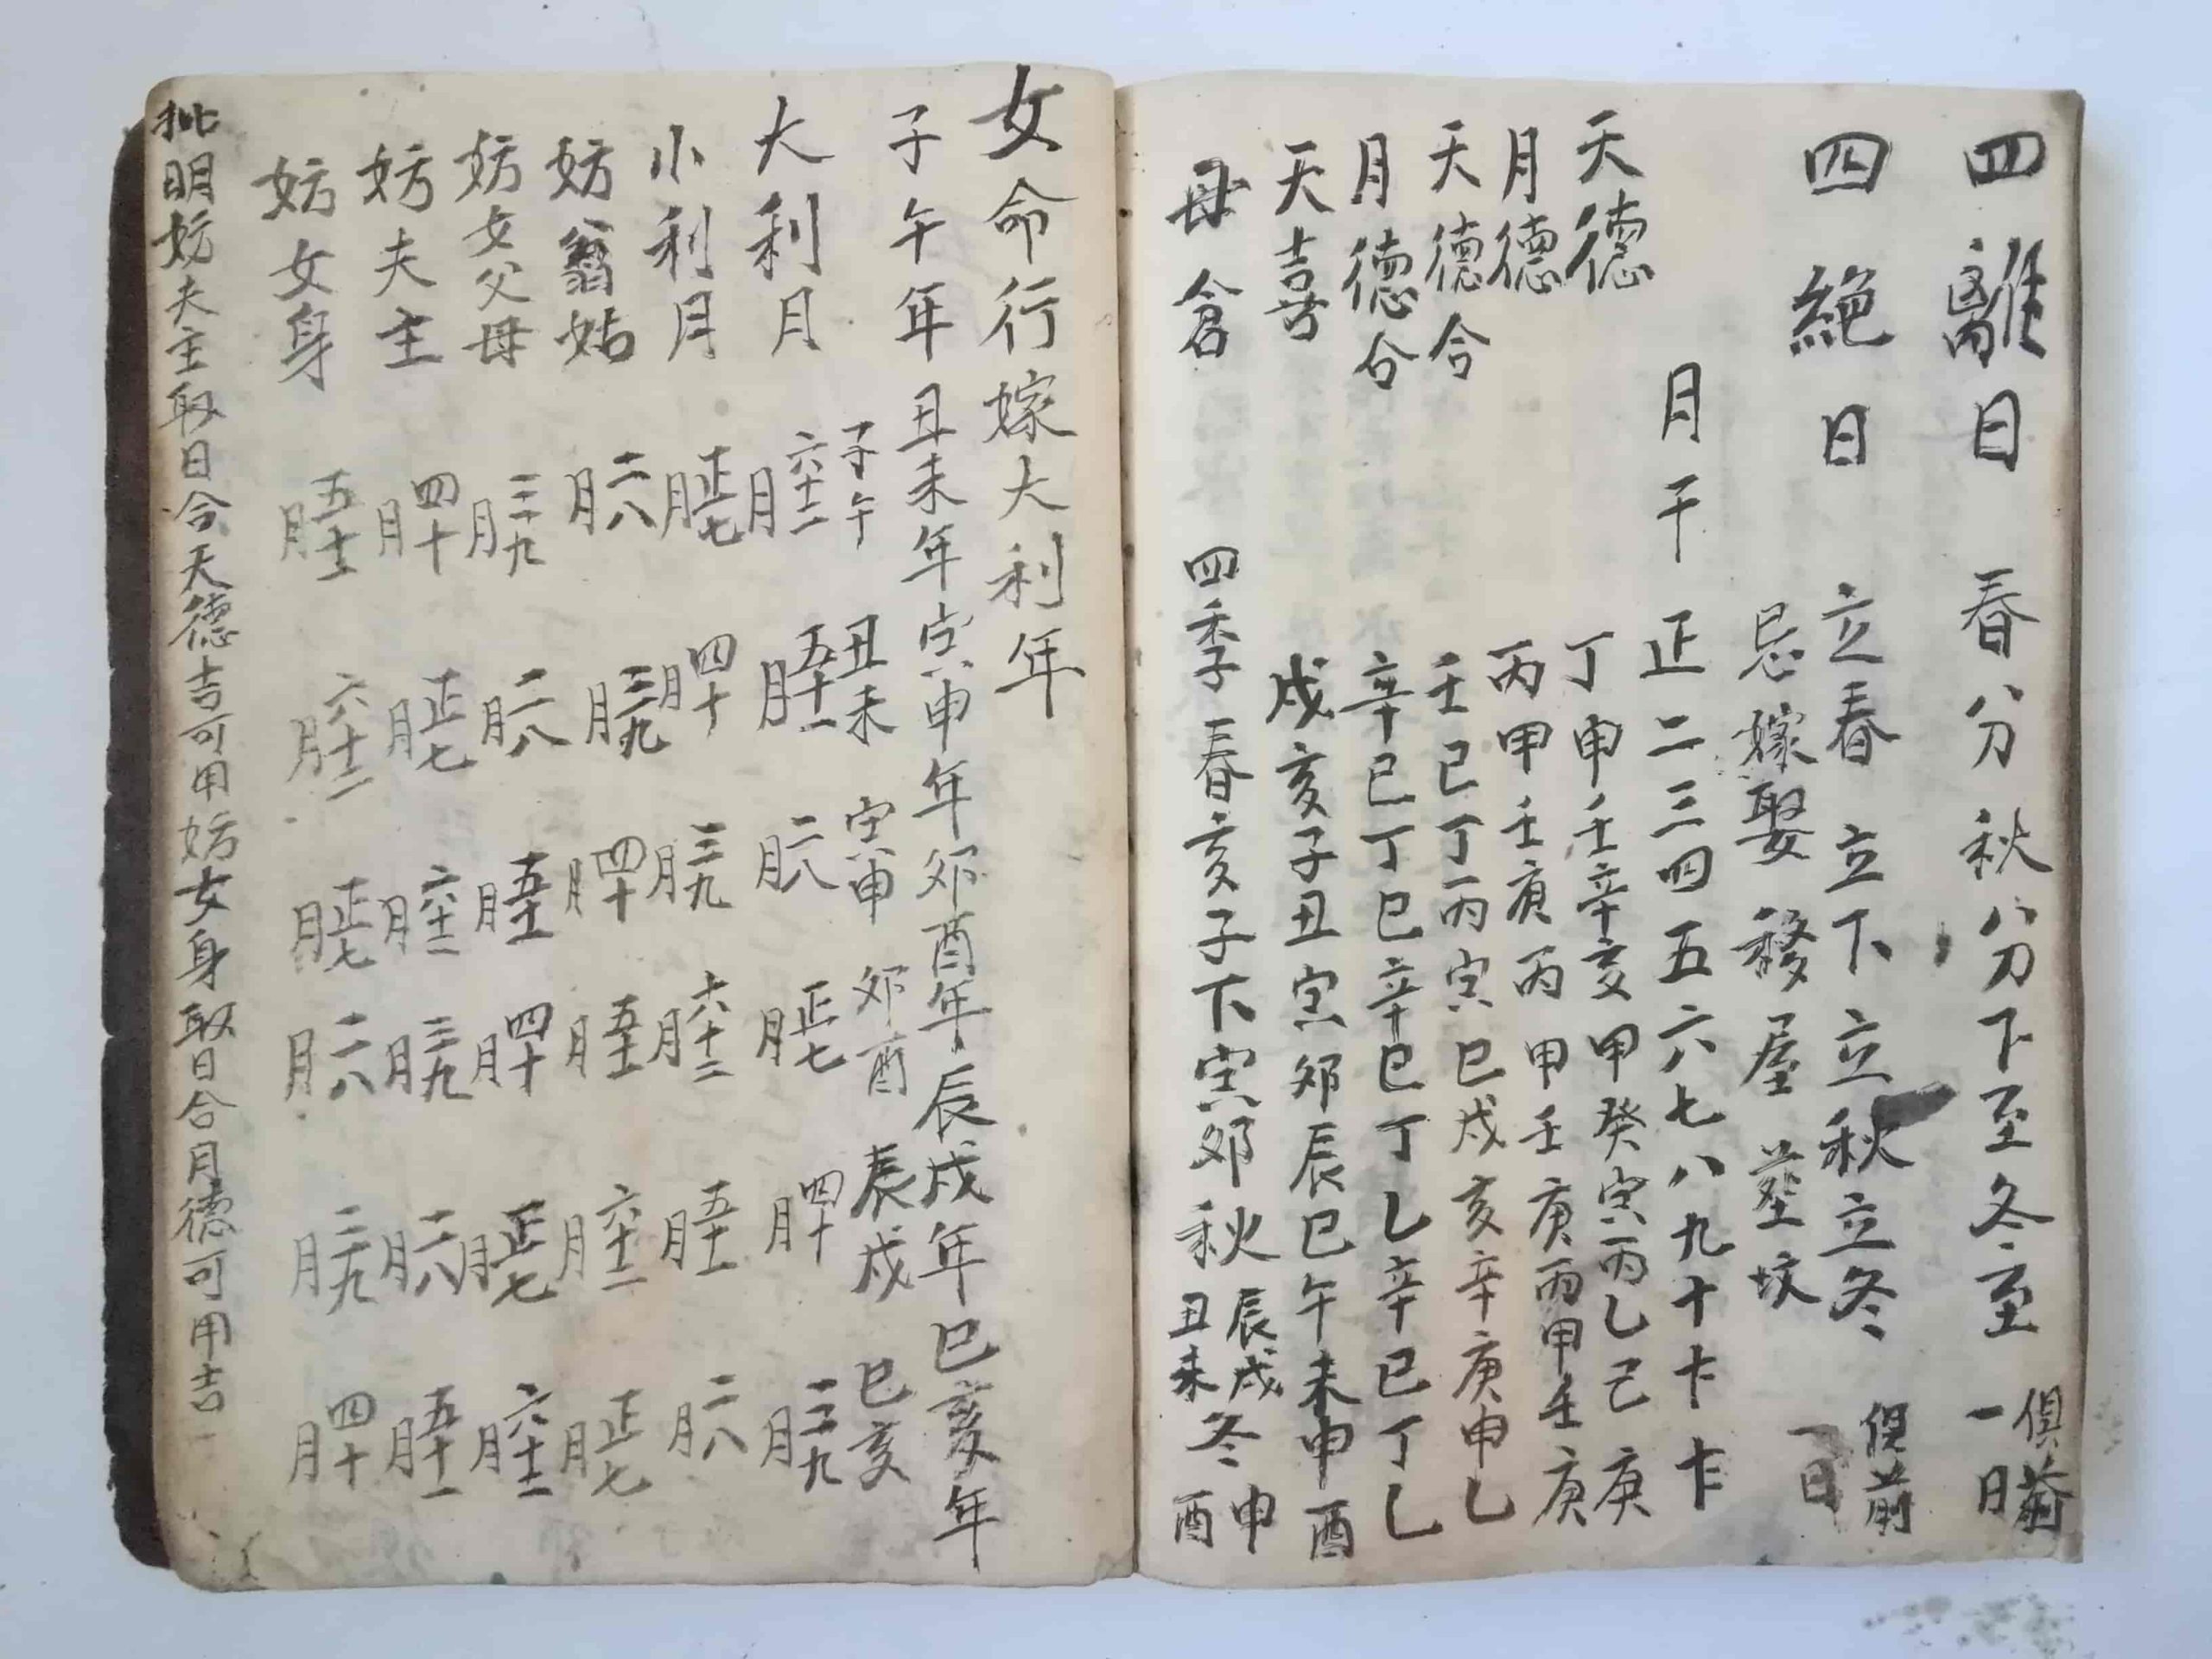 四離日 春分秋分下至冬至 俱前一日
四絕日 立春立下立秋立冬 俱前一日
忌嫁娶移屋塟坟
月干 正二三四五六七八九十
天德 丁申壬辛亥甲癸寅丙乙己庚
月德 丙甲壬庚丙甲壬庚丙甲壬庚
天德合 壬巳丁丙寅巳戍亥辛庚申乙
月德合 辛巳丁巳辛巳丁乙辛巳丁乙
天喜 戍亥子丑寅夘辰巳午未申酉
母倉 四季 春亥子下寅夘秋辰戍丑未冬申酉
女命行嫁大利年
子午年丑未年寅申年夘酉年辰戍年巳亥年
子午 丑未 寅申 夘酉 辰戍 巳亥
大利月 六十二月 五十一月 二八月 正七月 四十月 三九月
小利月 正七月 四十月 三九月 六十二月 五十一月 二八月
妨翁姑 二八月 三九月 四十月 五十一月 六十二月 正七月
妨女父母 三九月 二八月 五十一月 四十月 正七月 六十二月
妨夫主 四十月 正七月 六十二月 三九月 二八月 五十一月
妨女身 五十一月 六十二月 正七月 二八月 三九月 四十月
批明妨夫主取日合天德吉可用妨女身取日合月德可用吉